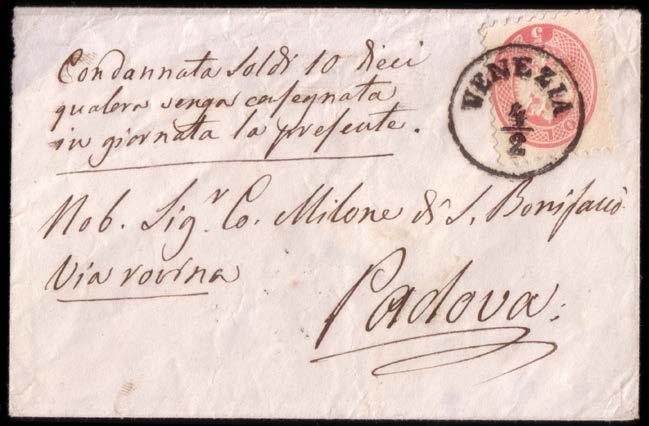 Condannata Soldi 10 Dieci
qualora venga consegnata
in giornata la presente.
VENEZIA
4/2
5
Nob. Sigr. Co. Milone di S. Bonifacio
Via rovina
Padova